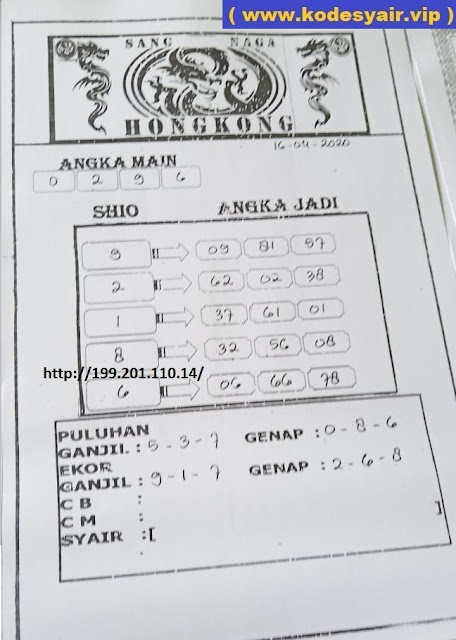 ( www.kodesyair.vip )
SANG NAGA
HONGKONG
16-04-2020
ANGKA MAIN
0 2 9 6
SHIO ANGKA JADI
9 !! 09 81 57
2 !! 62 02 38
1 !! 37 61 01
8 !! 32 56 08
http://199.201.110.14/
6 !! 06 66 78
PULUHAN
GANJIL : 5 - 3 - 7 GENAP : 0 - 8 - 6
EKOR
GANJIL : 9 - 1 - 7 GENAP : 2 - 6 - 8
C B :
C M :
SYAIR :[ ]